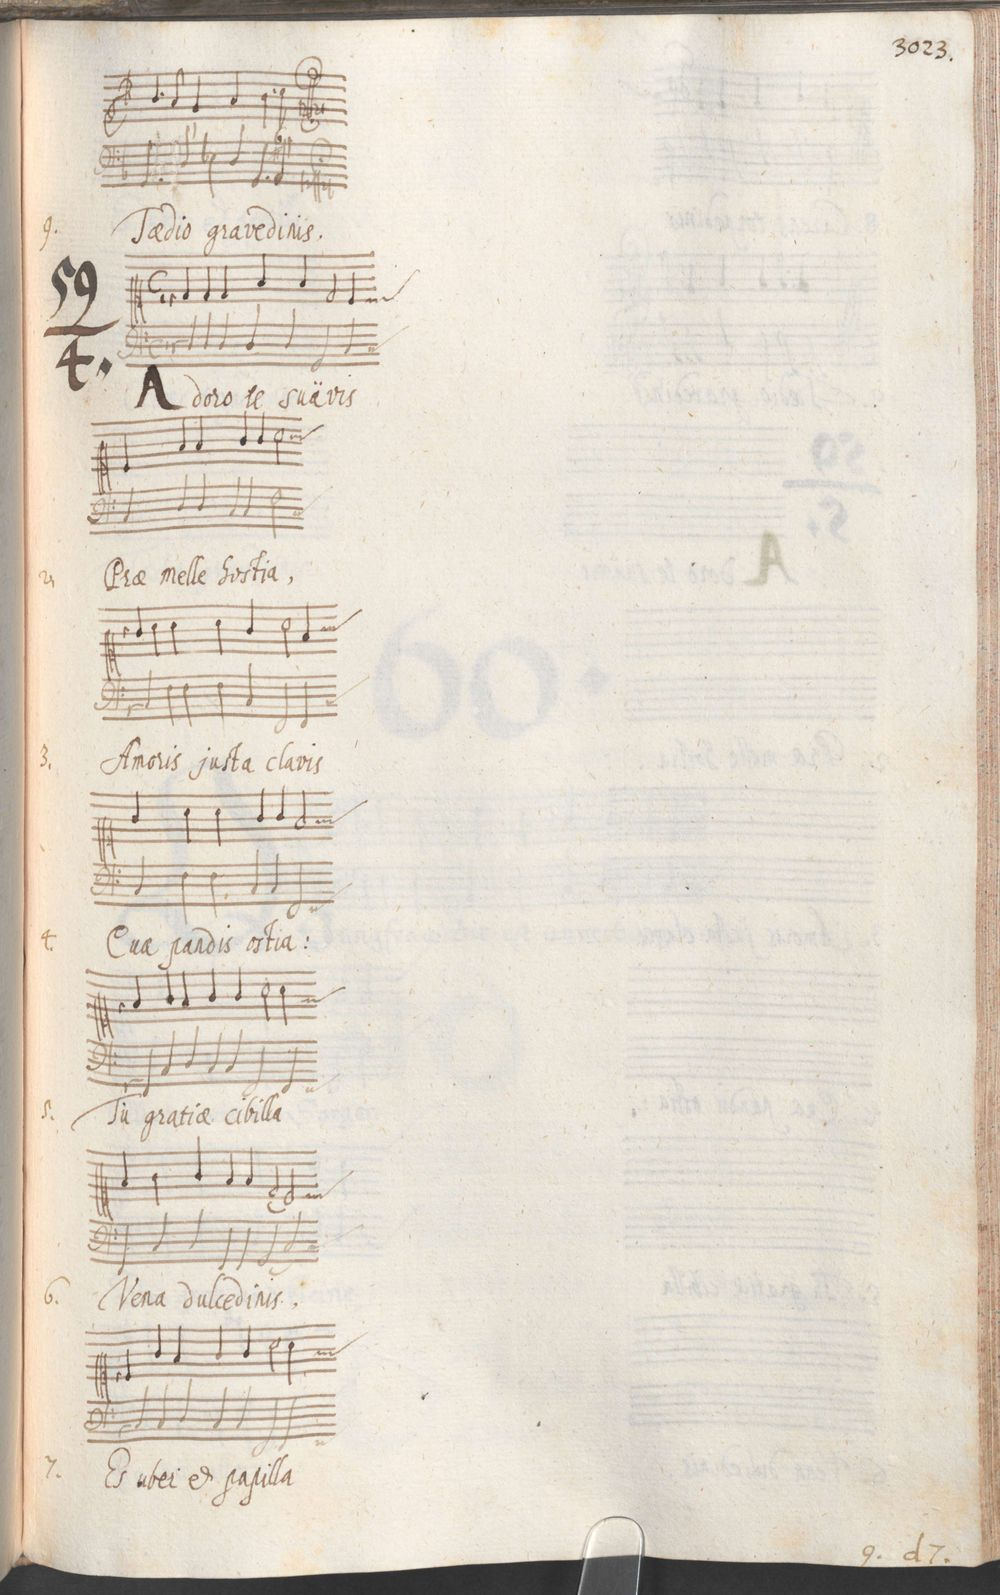 3023.
9. Tædio gravedinis.
59
4.
Adoro te suävis
2. Præ melle hostia,
3. Amoris justa clavis
4. Cuæ pandis ostia:
5. Tu gratiæ cibilla
6. Vena dulcedinis,
7. Es uber & papilla
9. d7.